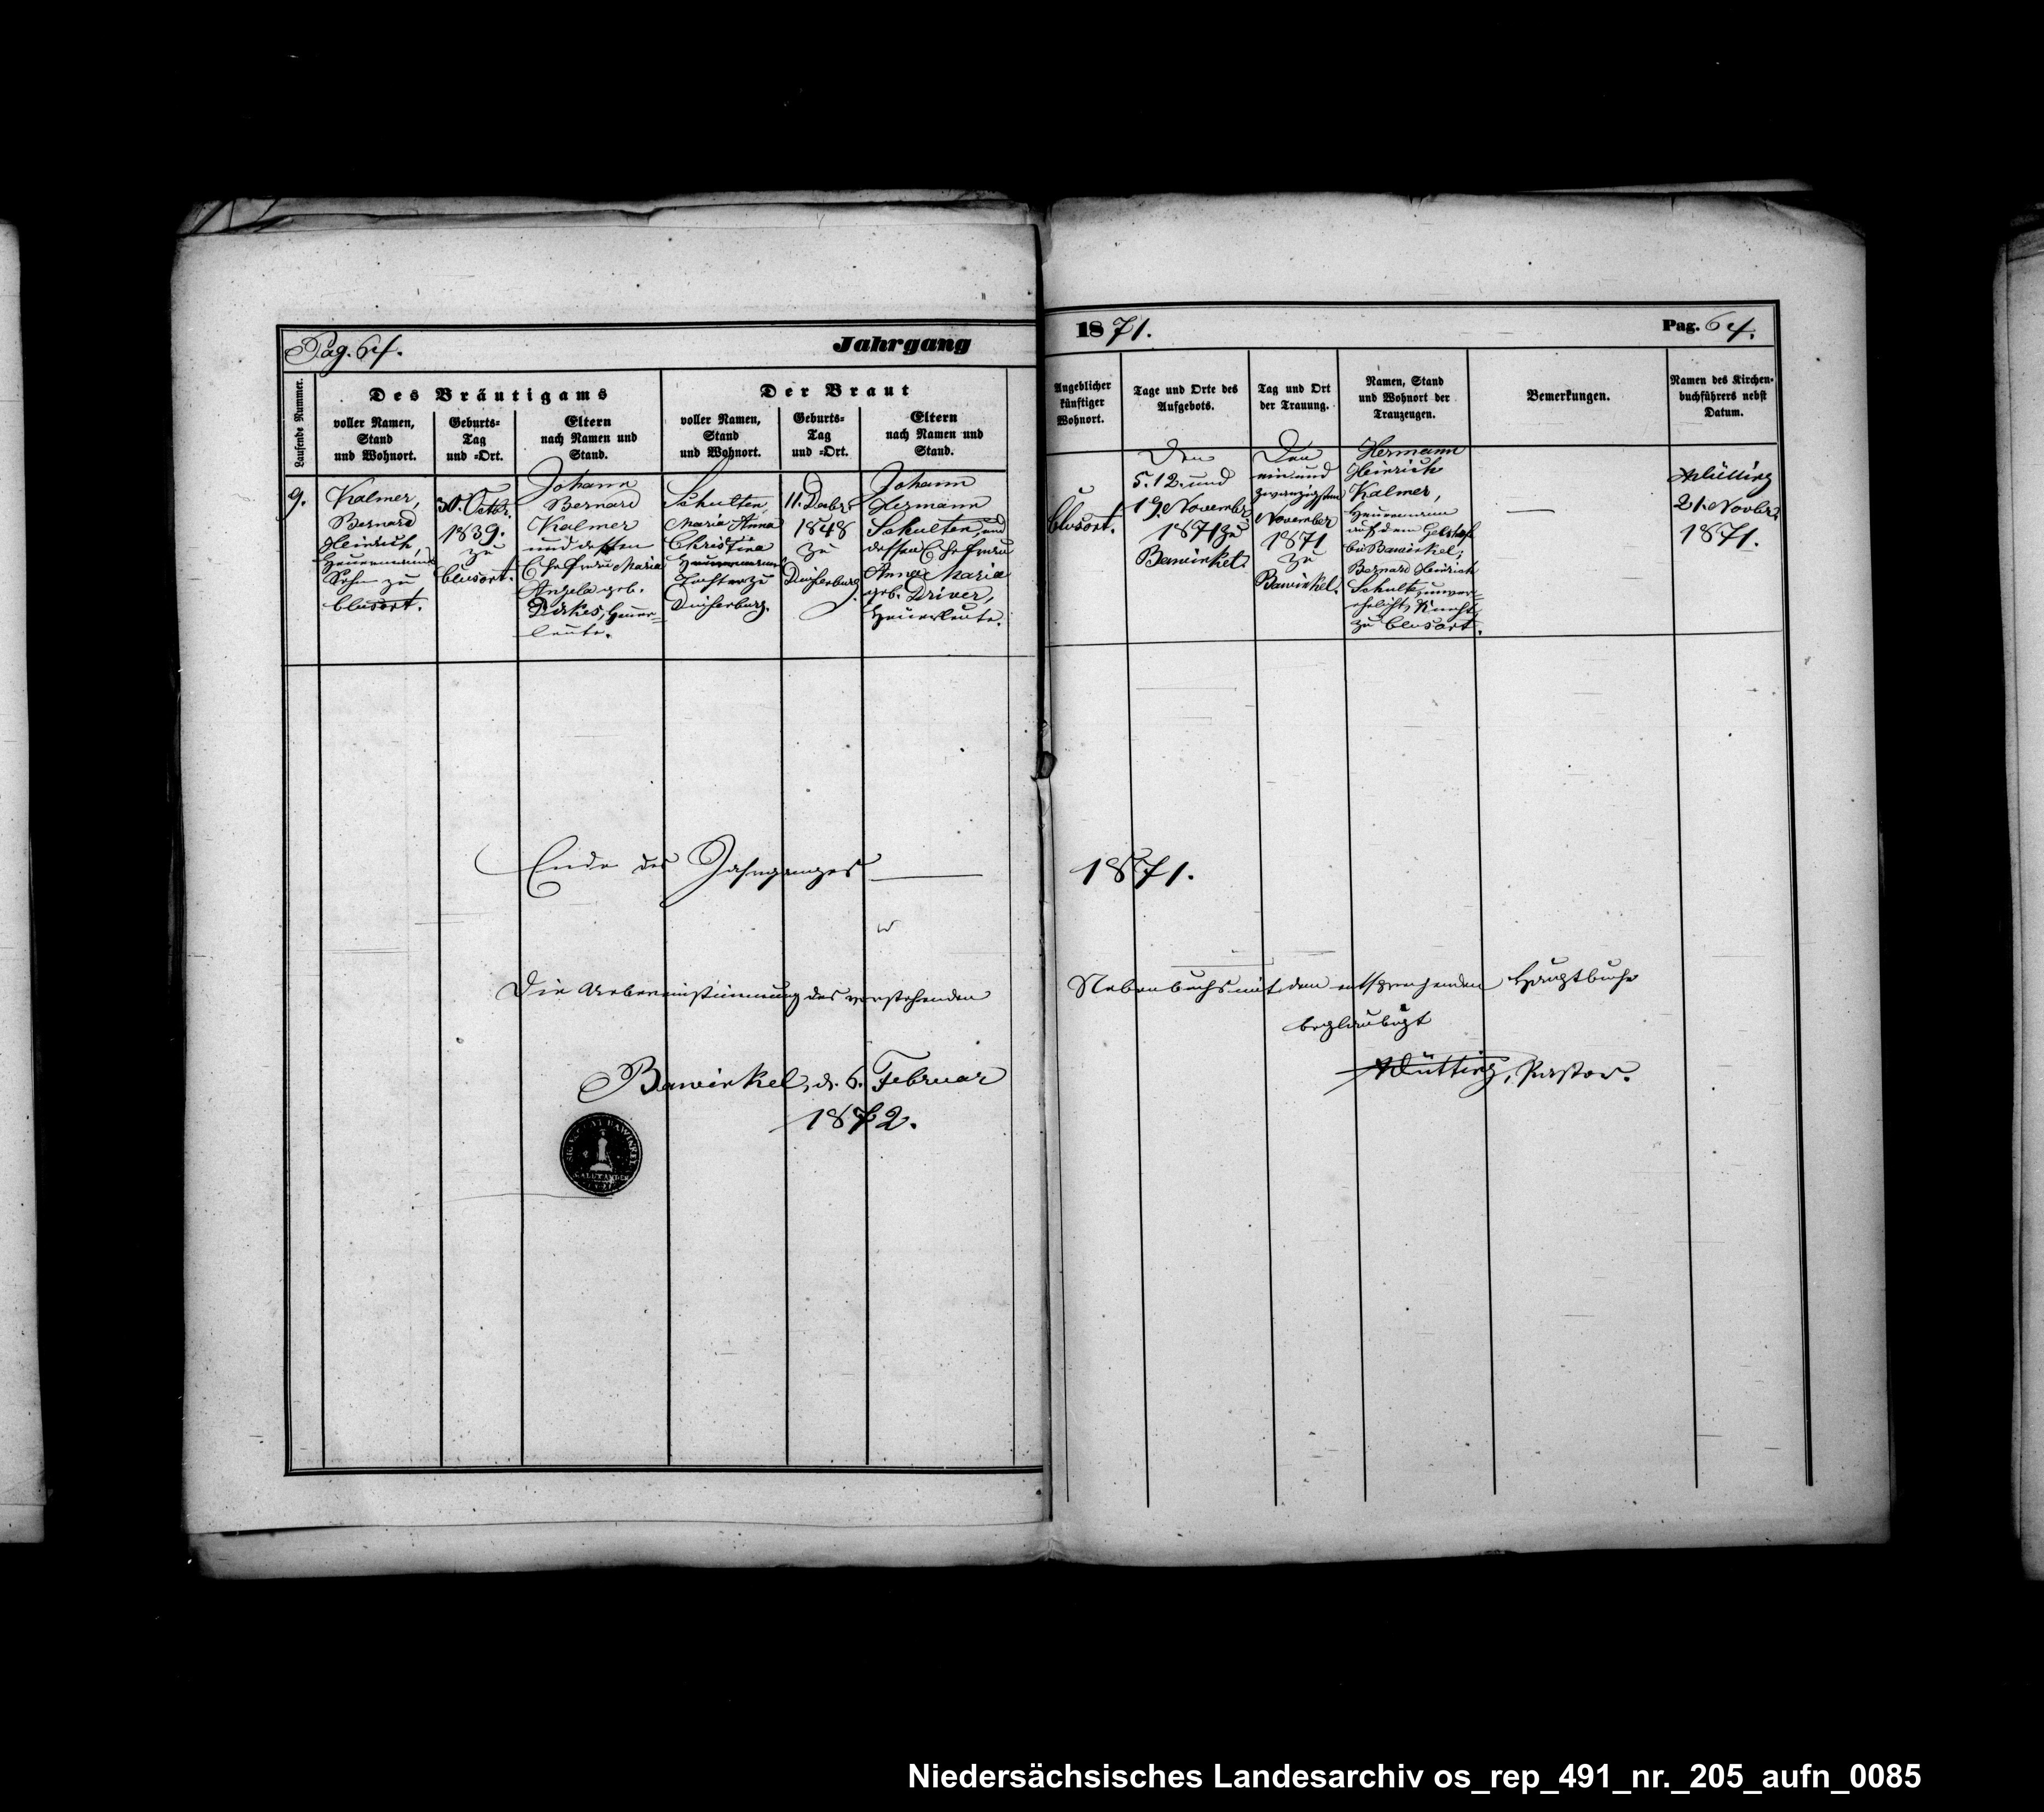 Pag. 64.
Jahrgang
1871.
Pag. 64.
Laufende Nummer.
Des Bräutigams
Der Braut
voller Namen,
Stand
und Wohnort.
Geburts-
Tag
und =Ort.
Eltern
nach Namen und
Stand.
voller Namen,
Stand
und Wohnort.
Geburts-
Tag
und =Ort.
Eltern
nach Namen und
Stand.
Angeblicher
künftiger
Wohnort.
Tage und Orte des
Aufgebots.
Tag und Ort
der Trauung.
Namen, Stand
und Wohnort der
Trauzeugen.
Bemerkungen.
Namen des Kirchen-
buchführers nebst
Datum.
9.
Kalmer,
Bernard
Heinrich,
Heuermanns
Sohn zu
Clusort.
30. Octbr.
1839.
zu
Clusort.
Johann
Bernard
Kalmer
und dessen
Ehefrau Maria
Angela geb.
Dirkes, Heuer-
leute.
Schulten,
Maria Anna
Christina
Heuermanns
Tochter zu
Duisenburg.
11. Decbr.
1848
zu
Duisenburg.
Johann
Hermann
Schulten, und
dessen Ehefrau
Anna Maria
geb. Driver,
Heuerleute.
Clusort.
Den
5. 12. und
19. Novembr.
1871 zu
Bawinkel.
Den
ein und
zwanzigsten
November
1871
zu
Bawinkel.
Hermann
Heinrich
Kalmer,
Heuermann
auf dem
bei Bawinkel;
Bernard Heinrich
Schulte, unver-
ehelicht, Knecht
zu Clusort.
Wütting
21. Novbr.
1871.
Ende des Jahrganges
1871.
Die Uebereinstimmung des vorstehenden
Nebenbuchs mit dem entsprechenden Hauptbuche
beglaubigt
Bawinkel, d. 6. Februar
1872.
Wütting, Pastor.
BAWINKEL
Niedersächsisches Landesarchiv os_rep_491_nr._205_aufn_0085